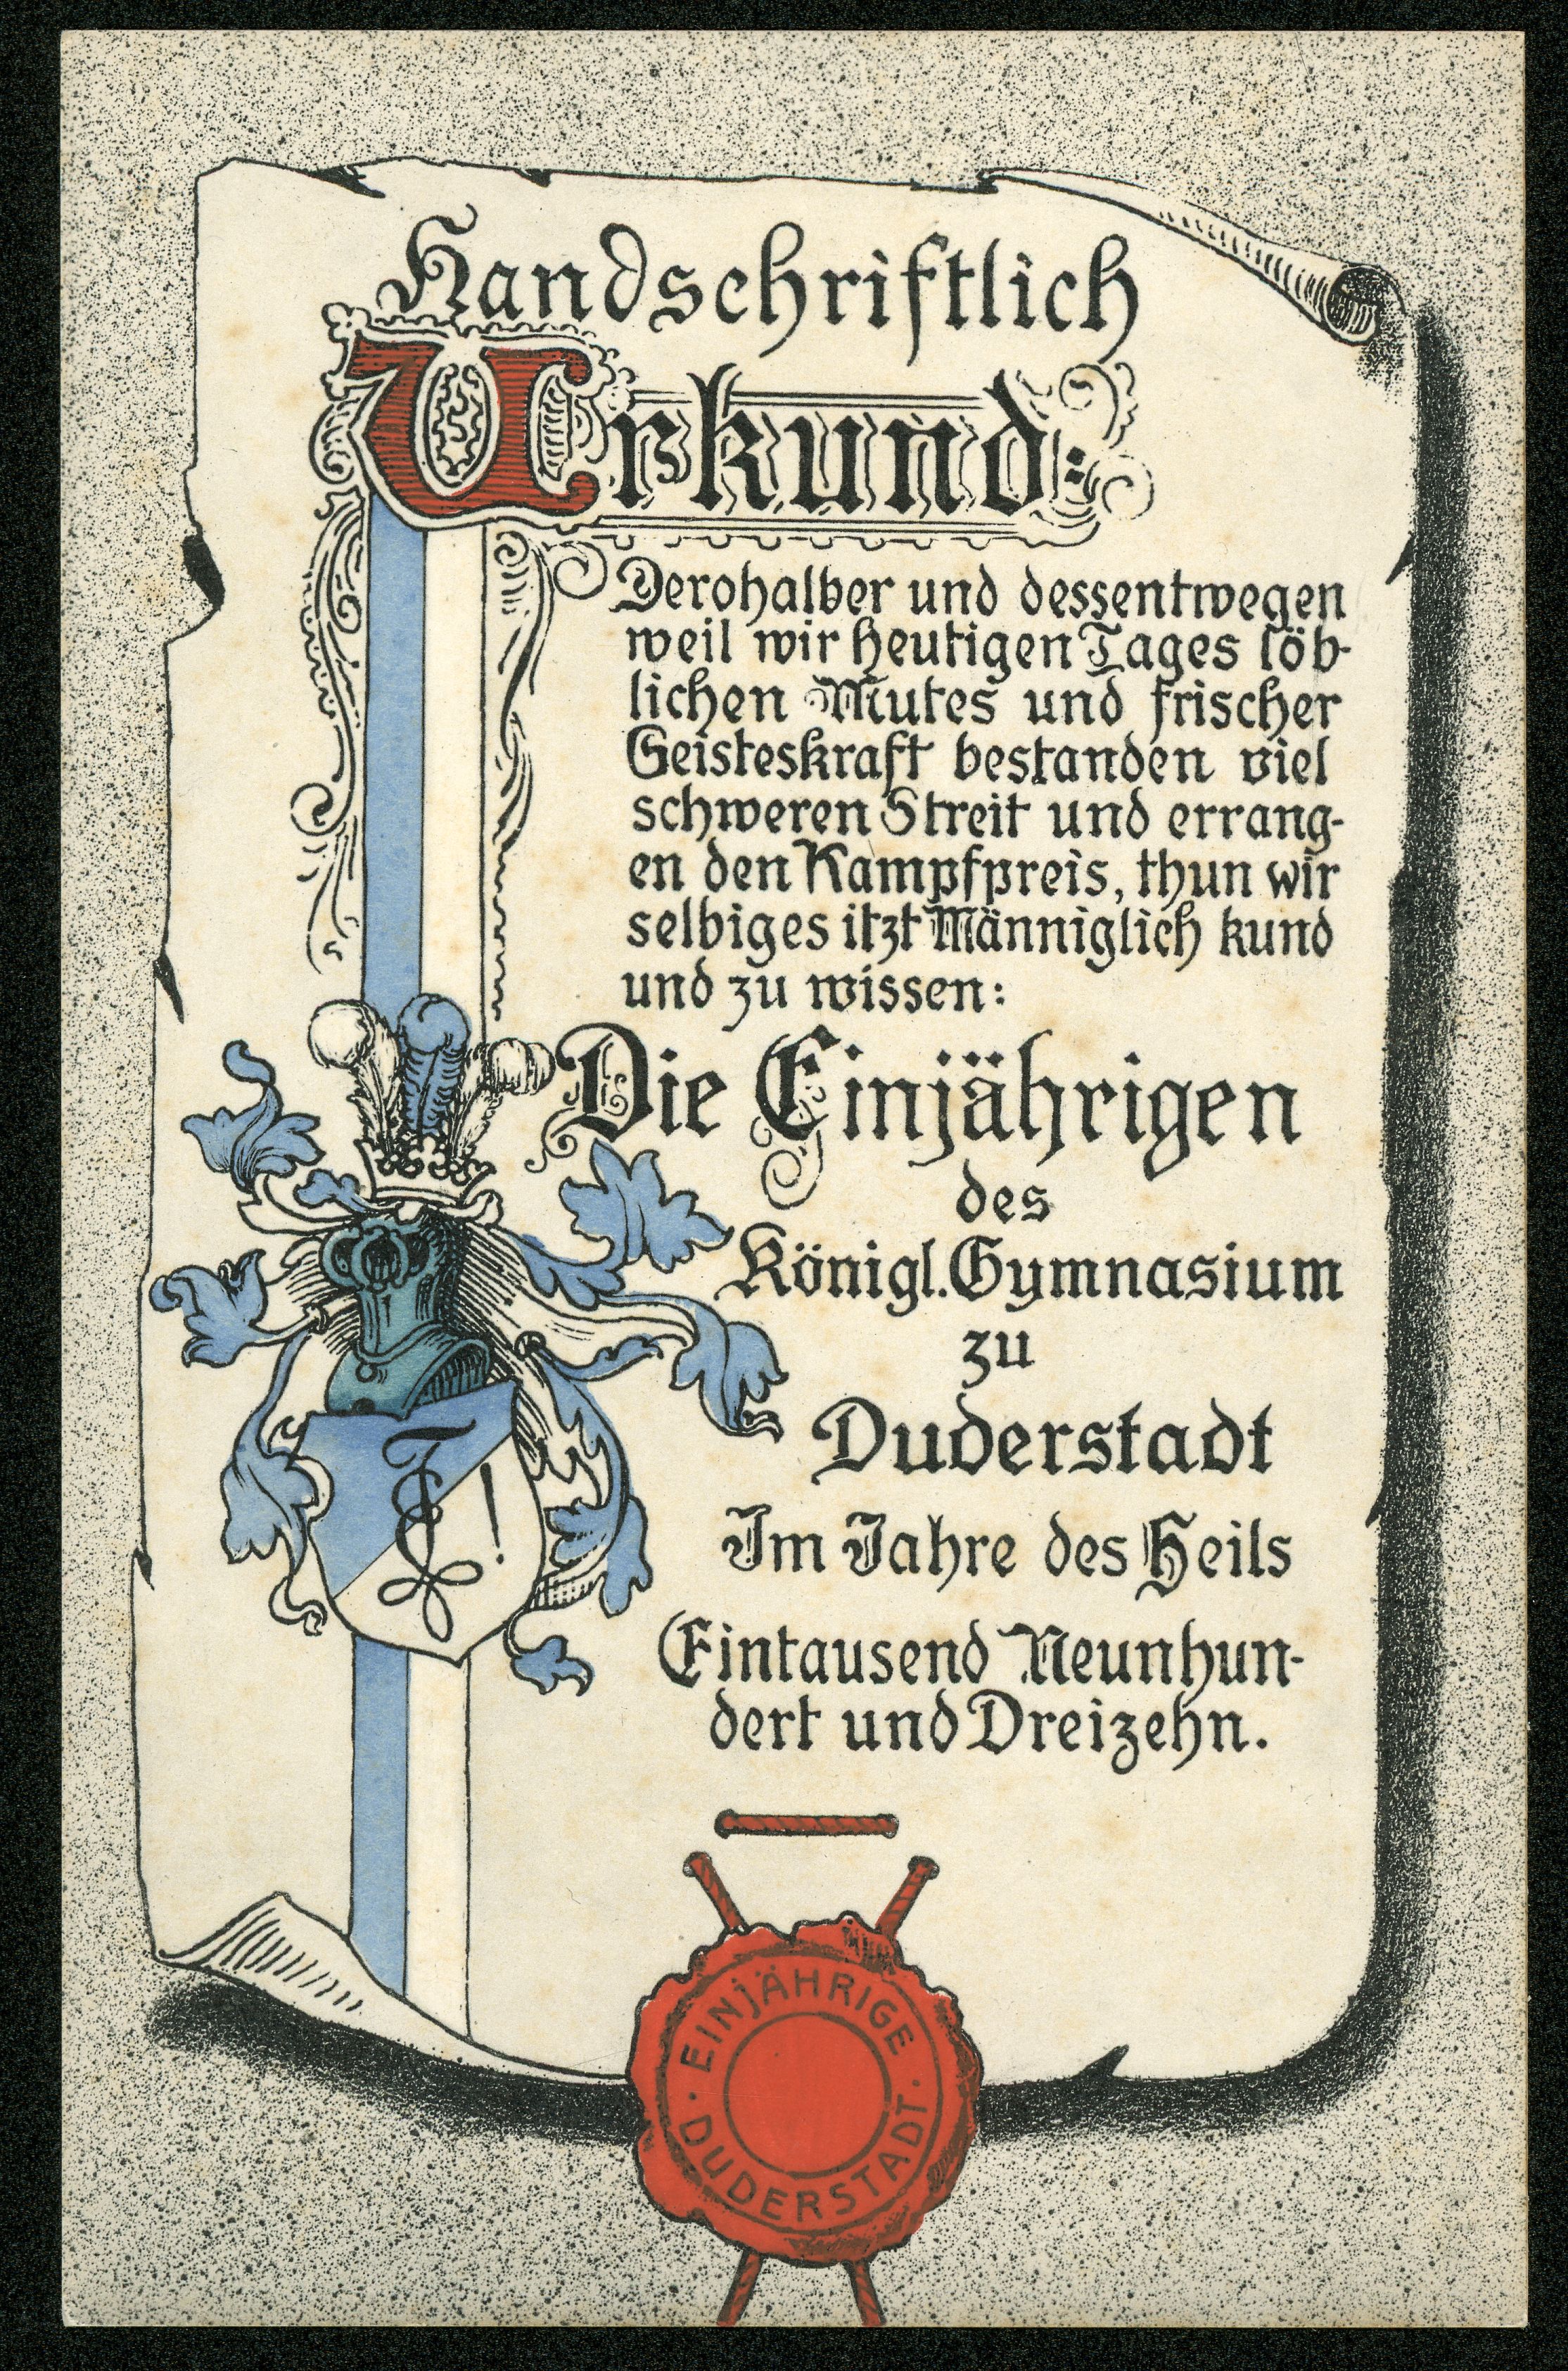 Handschriftlich
Urkund:
Derohalber und dessentwegen
weil wir heutigen Tages löb-
lichen Mutes und frischer
Geisteskraft bestanden viel
schweren Streit und errang-
en den Kampfpreis, thun wir
selbiges itzt Männiglich kund
und zu wissen:
Die Einjährigen
des
Königl. Gymnasium
zu
Duderstadt
Im Jahre des Heils
Eintausend Neunhun-
dert und Dreizehn.
EINJÄHRIGE
· DUDERSTADT ·